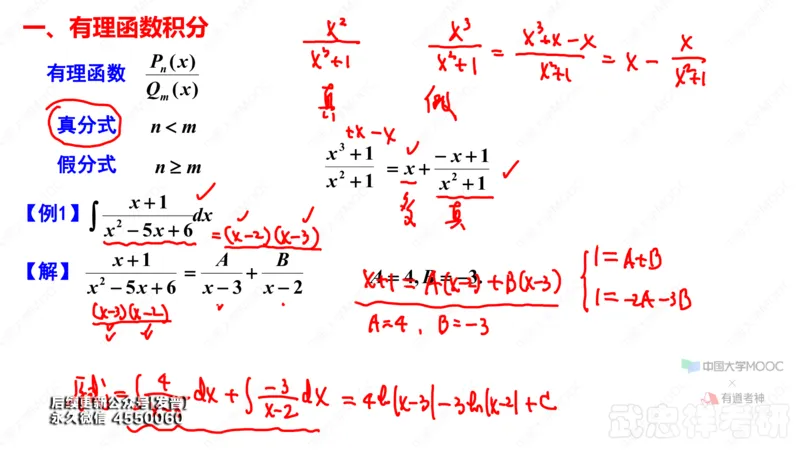 一、有理函数积分
有理函数 Pn(x) / Qm(x)
真分式 n < m
假分式 n ≥ m
x² / (x³+1) 真
x³ / (x²+1) = (x³+x−x) / (x²+1) = x − x / (x²+1) 假
+x−x
(x³+1) / (x²+1) = x + (−x+1) / (x²+1)
多 真
【例1】 ∫ (x+1) / (x²−5x+6) dx
= (x−2)(x−3)
【解】 (x+1) / (x²−5x+6) = A / (x−3) + B / (x−2)
(x−3)(x−2)
A = 4, B = −3.
x+1 = A(x−2) + B(x−3)
A=4, B=−3
1 = A+B
1 = −2A−3B
= ∫ 4 dx + ∫ −3 / (x−2) dx = 4 ln|x−3| − 3 ln|x−2| + C
后续更新公众号[发普]
永久微信 4550060
中国大学MOOC
×
有道考神
武忠祥考研